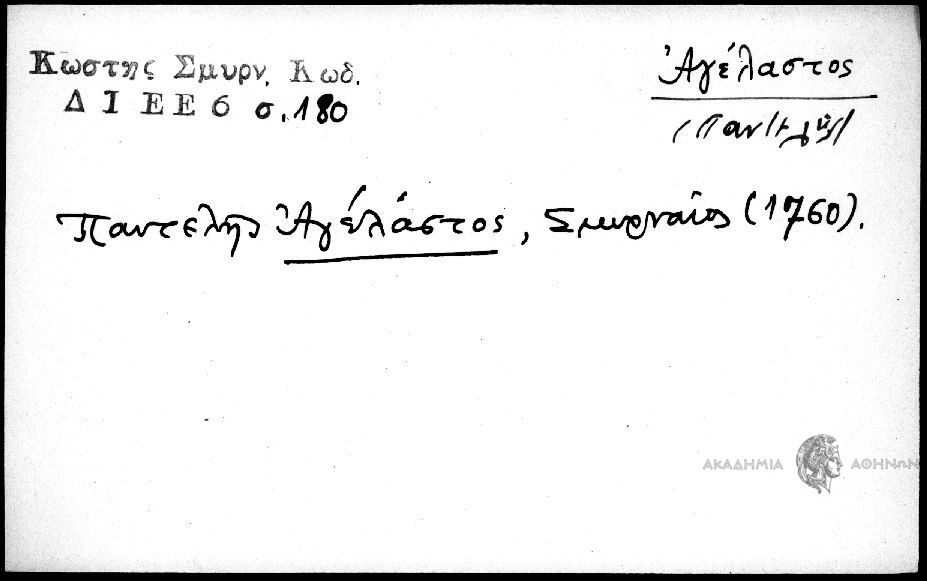 Κωστης Σμυρν. Κωδ.
Δ Ι Ε Ε 6 σ. 180
Ἀγέλαστος
Παντελῆς Ἀγέλάστος, Σμυρναῖος (1760).
ΑΚΑΔΗΜΙΑ ΑΘΗΝΩΝ